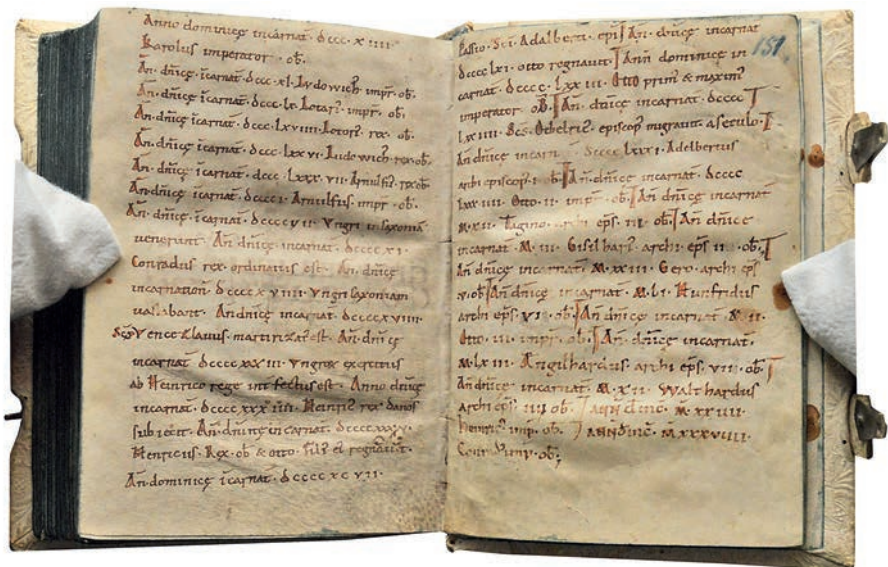 Anno dominicę incarnat̄ · dcccc · x iiii ·
Karolus imperator · ob̄ ·
An̄ · dn̄icę īcarnat̄ · dccc · xl · Ludowicꝰ impr̄ · ob̄ ·
An̄ · dn̄icę īcarnat̄ · dccc · le · Lotarꝰ · impr̄ · ob̄ ·
An̄ · dn̄icę īcarnat̄ · dccc · lxviiii · Lotorꝰ · rex · ob̄ ·
An̄ · dn̄icę īcarnat̄ · dccc · lxxvi · Ludewicꝰ rex · ob̄ ·
An̄ · dn̄icę īcarnat̄ · dccc · lxxx · vii · Arnulfꝰ · rex ob̄
An̄ dn̄icę īcarnat̄ · dcccc · i · Arnulfus impr̄ · ob̄ ·
An̄ · dn̄icę · īcarnat̄ · dccccvii · Vngri in saxoniā
uenerunt · An̄ dn̄icę incarnat̄ · dcccc xi ·
Conradus rex ordinatus est · An̄ · dn̄icę
incarnation̄ · dcccc x viiii · Vngri saxoniam
uastabant · An̄ dn̄icę incarnat̄ · dccccxviiii ·
Sc̄s Vencezlauus martirizatꝰ est · An̄ dn̄icę
incarnat̄ dcccc xxx iii · Vngrox exercitus
ab Heinrico rege int̄fectus est · Anno dn̄icę
incarnat̄ · dcccc xxx iiii · Heinricꝰ rex danos
subiecit · An̄ · dn̄icę incarnat̄ · dccccxxxv ·
Henricus · Rex · ob̄ & otto · filiꝰ eꝰ regnauit ·
An̄ · dominicę īcarnat̄ · dcccc xc vii ·
Passio · Sc̄i · Adalberti · ep̄i An̄ · dn̄icę incarnat̄
151
dcccc lxi · otto regnauit · Ann̄ dominicę in
carnat̄ · dcccc · lxx iii · Otto primꝰ & maximꝰ
imperator ob̄ · An̄ · dn̄icę incarnat̄ · dcccc
lxx iiii · Sc̄s · Othelricꝰ · episcopꝰ migrauit a seculo ·
An̄ dn̄icę incarn̄ dcccc lxxx i · Adelbertus
archiepiscopꝰ · i · ob̄ · An̄ · dn̄icę incarnat̄ · dcccc
lxxx iiii · Otto · ii · impr̄ · ob̄ · An̄ dn̄icę incarnat̄
M · xii · Tagino · archi ep̄s · iii · ob̄ · An̄ dn̄icę
incarnat̄ · M · iii · Gisilharꝰ · archi ep̄s ii · ob̄ ·
An̄ dn̄icę incarnat̄ · M · xxiii · Gero · archi ep̄s
v · ob̄ · An̄ dn̄icę incarnat̄ · M · li · Hunfridus
archi ep̄s · vi · ob̄ · An̄ · dn̄icę incarnat̄ · M · ii ·
Otto · iii · impr̄ · ob̄ · An̄ · dn̄icę incarnat̄ ·
M · lx iii · Engilhardus · archi ep̄s · vii · ob̄ ·
An̄ dn̄icę incarnat̄ · M · xii · Walthardus
archi ep̄s · iiii ob̄ · ANN dn̄inc̄ · M · xx iiii ·
Heinricꝰ imp̄ · ob̄ · ANN dn̄inc̄ · M xxxviiii ·
Conr̄ imp̄ · ob̄ ·